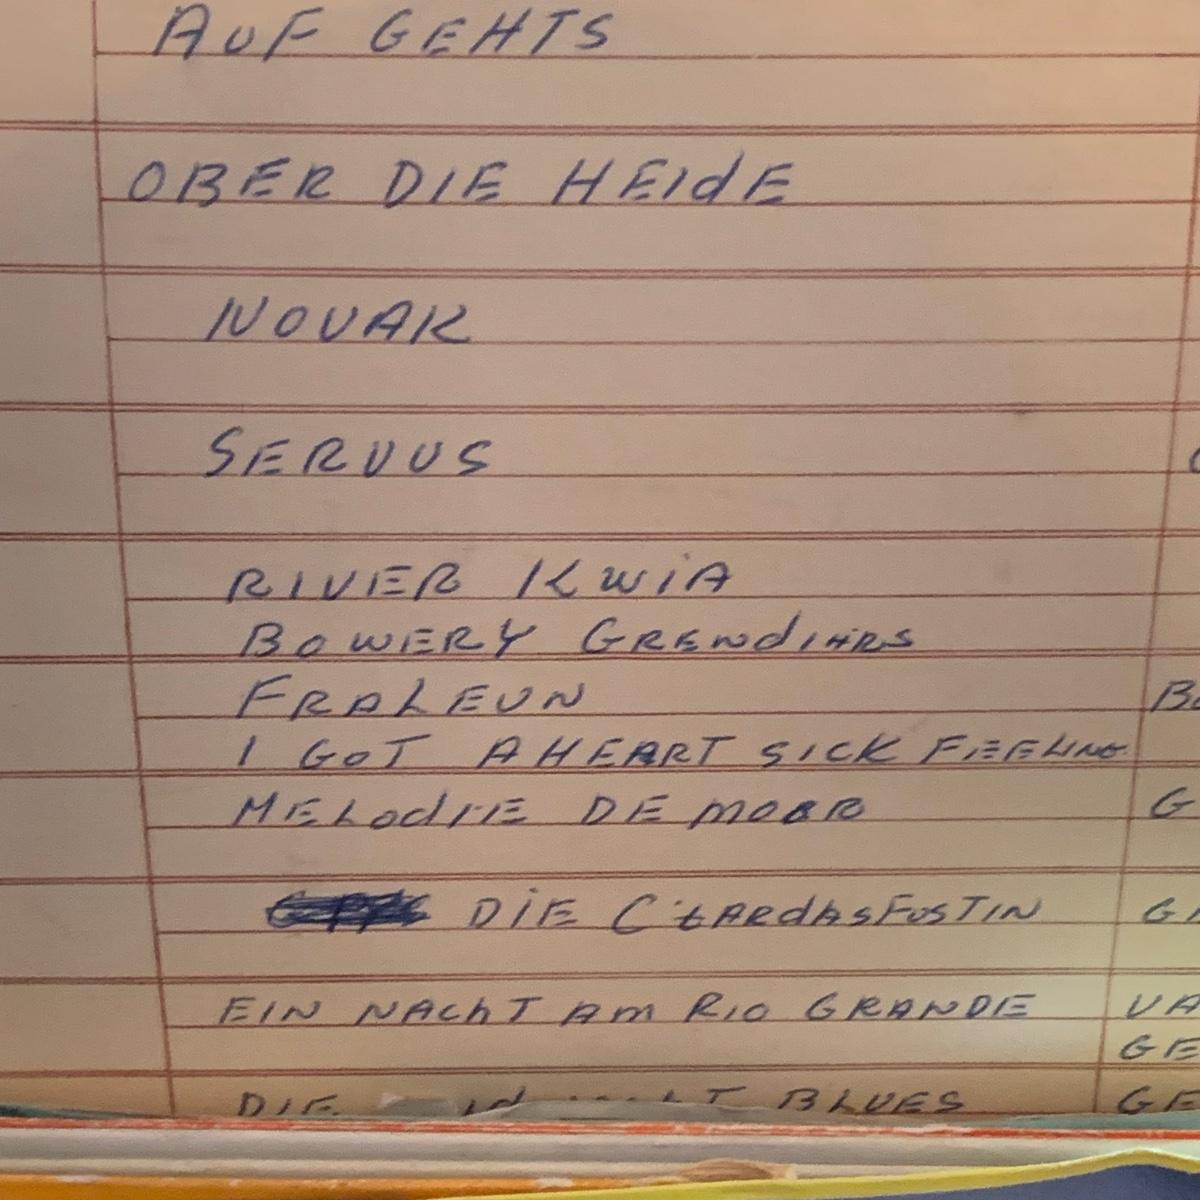 AUF GEHTS
OBER DIE HEIdE
NOVAK
SERVUS
RIVER KWiA
BOWERY GRENdIARS
FRALEUN
I GOT A HEART SICK FEELING
G
MELOdIE DE MOOR
DIE CZARDASFUSTIN
EIN NACHT AM RIO GRANDE VA
GE
DIE BLUES GE